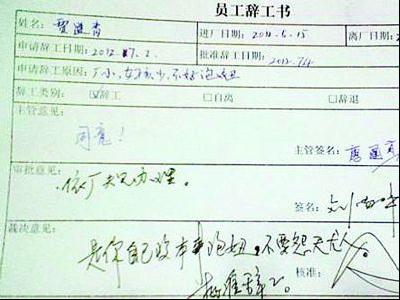 员工辞工书
姓名: 进厂日期: 2011.5.15 离厂日期: 2
申请辞工日期: 2012.7.2. 批准辞工日期: 2012.7.4
申请辞工原因: 厂小,女孩少,不好泡妞
辞工类别: ☑辞工 □自离 □辞退
主管意见:
同意!
主管签名:
审批意见:
依厂规办理。
签名:
裁决意见:
是你自己没本事泡妞,不要怨天尤人。
批准辞工。 核准: